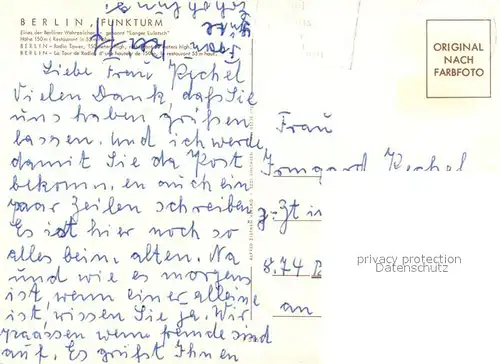 BERLIN, FUNKTURM
(Eines der Berliner Wahrzeichen, genannt "Langer Lulatsch"
Höhe 150 m (Restaurant in 55 m
BERLIN – Radio Tower, 150 meters high, restaurant 55 meters high
BERLIN – La Tour de Radio d'une hauteur de 150 m, le restaurant 55 m haut.
ORIGINAL
NACH
FARBFOTO
Liebe Frau Pechel
Vielen Dank, daß Sie
uns haben grüßen
lassen. Und ich werde
damit Sie da Post
bekommen auch ein
paar Zeilen schreiben
Es ist hier noch so
alles beim alten. Na
und wie es morgens
ist, wenn einer alleine
ist, wissen Sie ja. Wir
paassen wenn fremde sind
auf. Es grüßt Ihnen
Frau
Irmgard Pechel
z. Zt in
874
an
privacy protection
Datenschutz